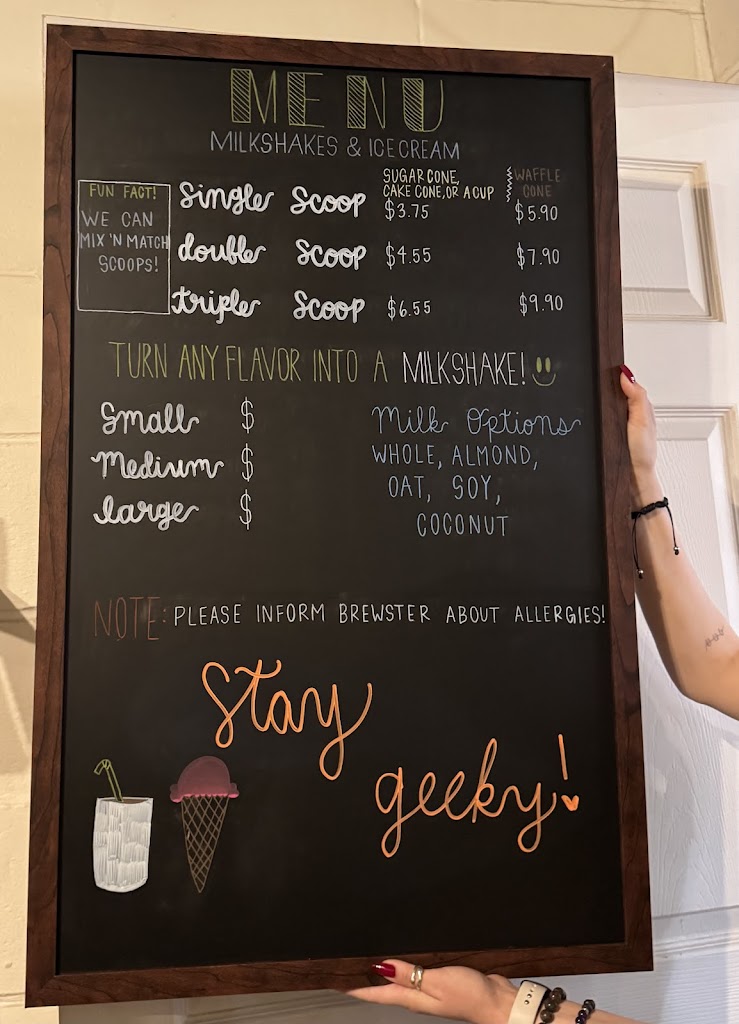 MENU
MILKSHAKES & ICE CREAM
SUGAR CONE,
CAKE CONE, OR A CUP
WAFFLE
CONE
FUN FACT!
WE CAN
MIX 'N MATCH
SCOOPS!
Single Scoop $3.75 $5.90
double Scoop $4.55 $7.90
triple Scoop $6.55 $9.90
TURN ANY FLAVOR INTO A MILKSHAKE!
Small $
Medium $
large $
Milk Options
WHOLE, ALMOND,
OAT, SOY,
COCONUT
NOTE: PLEASE INFORM BREWSTER ABOUT ALLERGIES!
Stay
geeky!